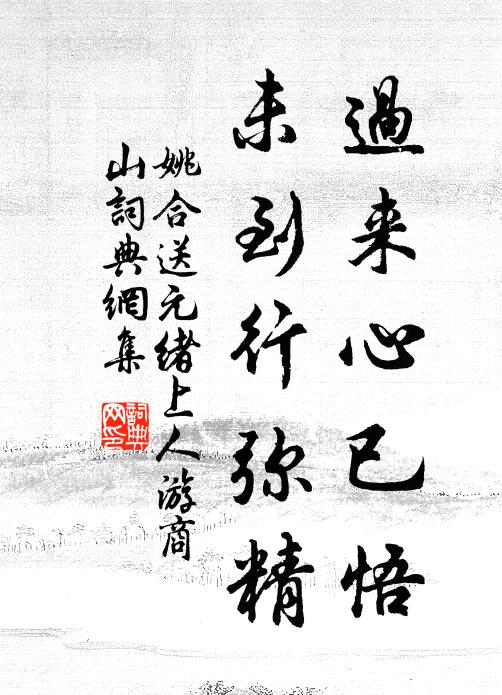 過来心已悟
未到行弥精
姚合送元緒上人游商
山詞典網集
詞典网印